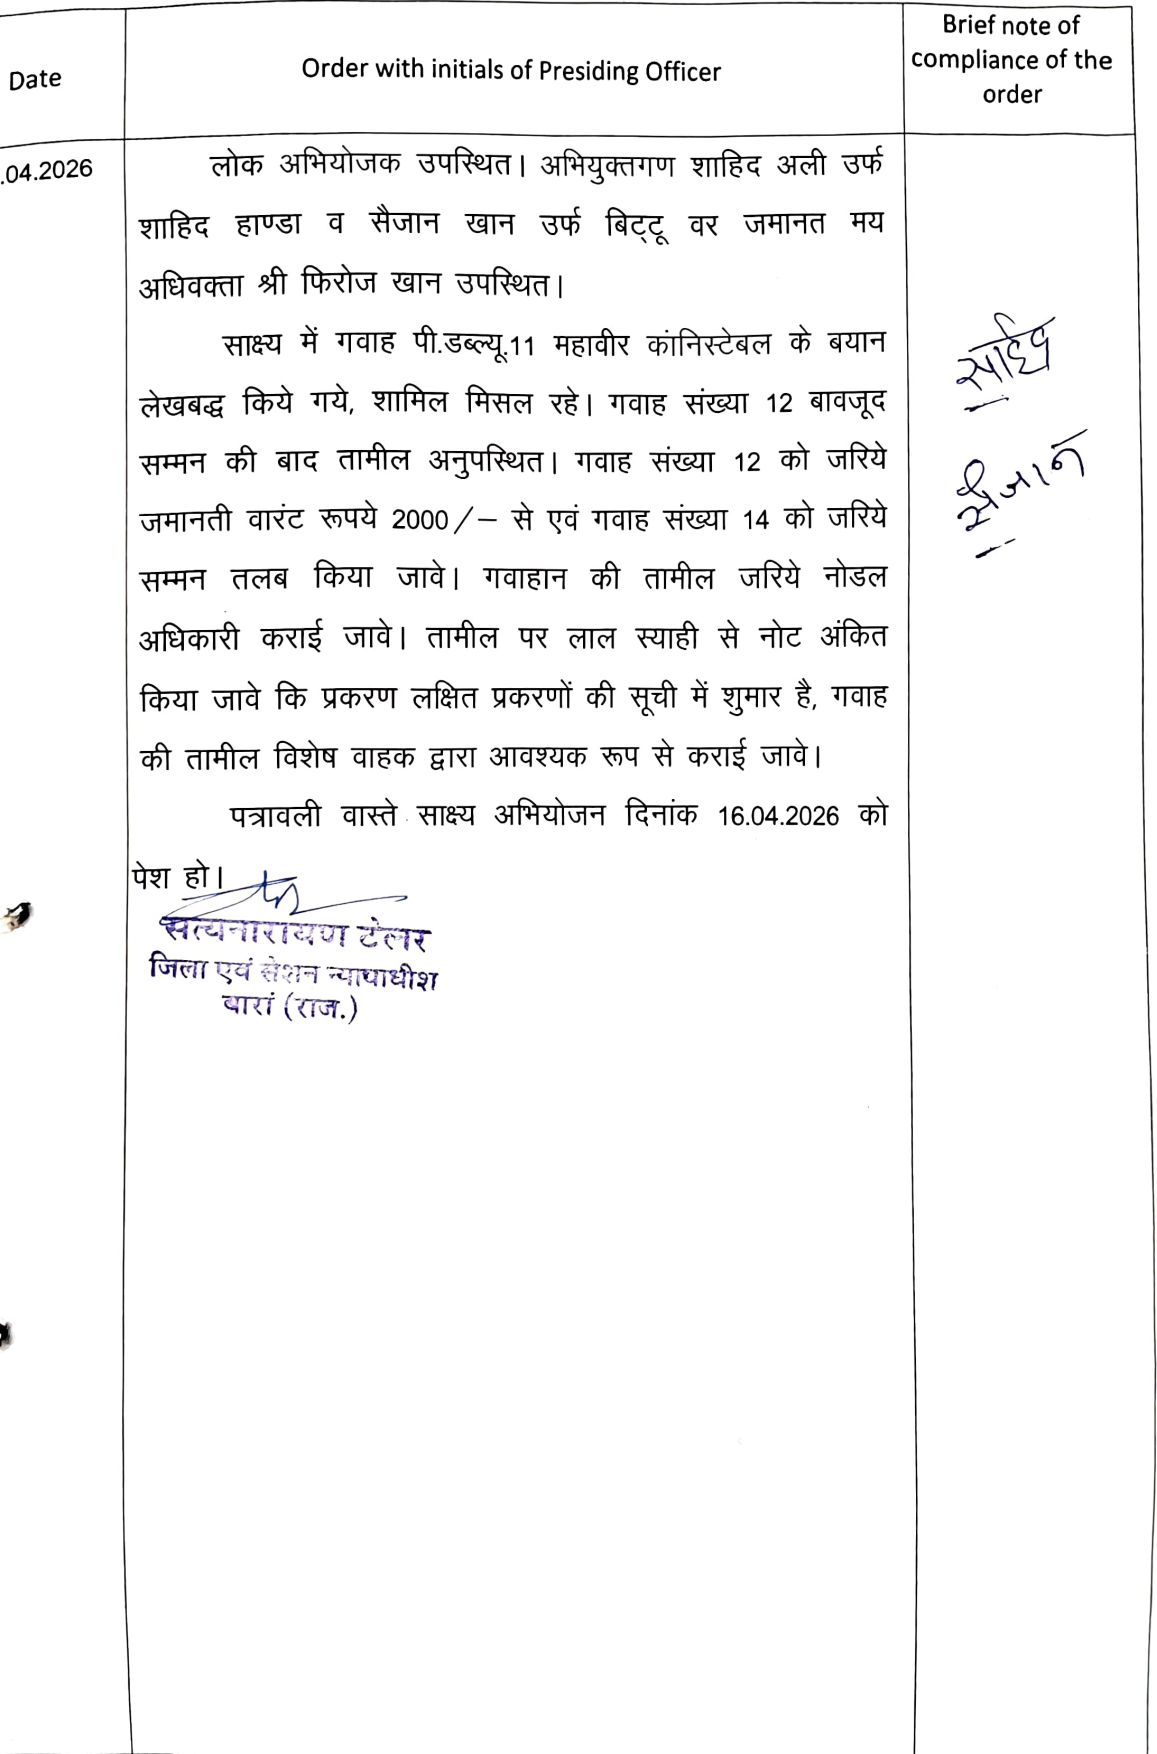 Date
Order with initials of Presiding Officer
Brief note of
compliance of the
order
.04.2026
लोक अभियोजक उपस्थित। अभियुक्तगण शाहिद अली उर्फ
शाहिद हाण्डा व सैजान खान उर्फ बिट्टू वर जमानत मय
अधिवक्ता श्री फिरोज खान उपस्थित।
साक्ष्य में गवाह पी.डब्ल्यू.11 महावीर कांनिस्टेबल के बयान
लेखबद्ध किये गये, शामिल मिसल रहे। गवाह संख्या 12 बावजूद
सम्मन की बाद तामील अनुपस्थित। गवाह संख्या 12 को जरिये
जमानती वारंट रूपये 2000/– से एवं गवाह संख्या 14 को जरिये
सम्मन तलब किया जावे। गवाहान की तामील जरिये नोडल
अधिकारी कराई जावे। तामील पर लाल स्याही से नोट अंकित
किया जावे कि प्रकरण लक्षित प्रकरणों की सूची में शुमार है, गवाह
की तामील विशेष वाहक द्वारा आवश्यक रूप से कराई जावे।
पत्रावली वास्ते साक्ष्य अभियोजन दिनांक 16.04.2026 को
पेश हो।
सत्यनारायण टेलर
जिला एवं सेशन न्यायाधीश
बारां (राज.)
सैजान